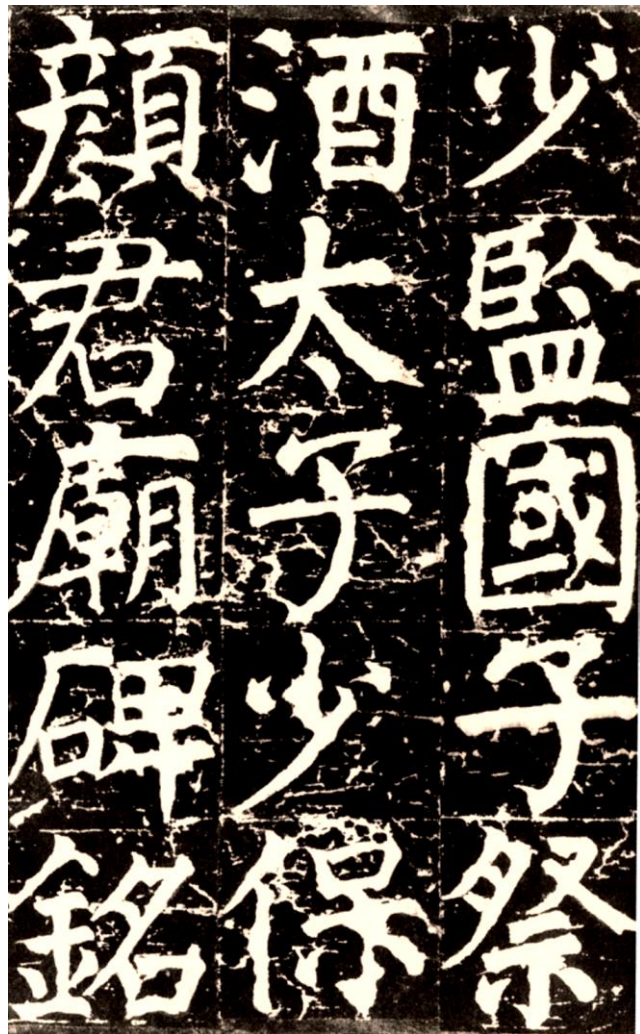 少監國子祭
酒太子少保
顏君廟碑銘